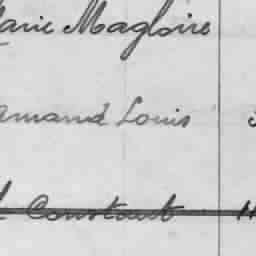 Marie Magloire
Armand Louis
Constant